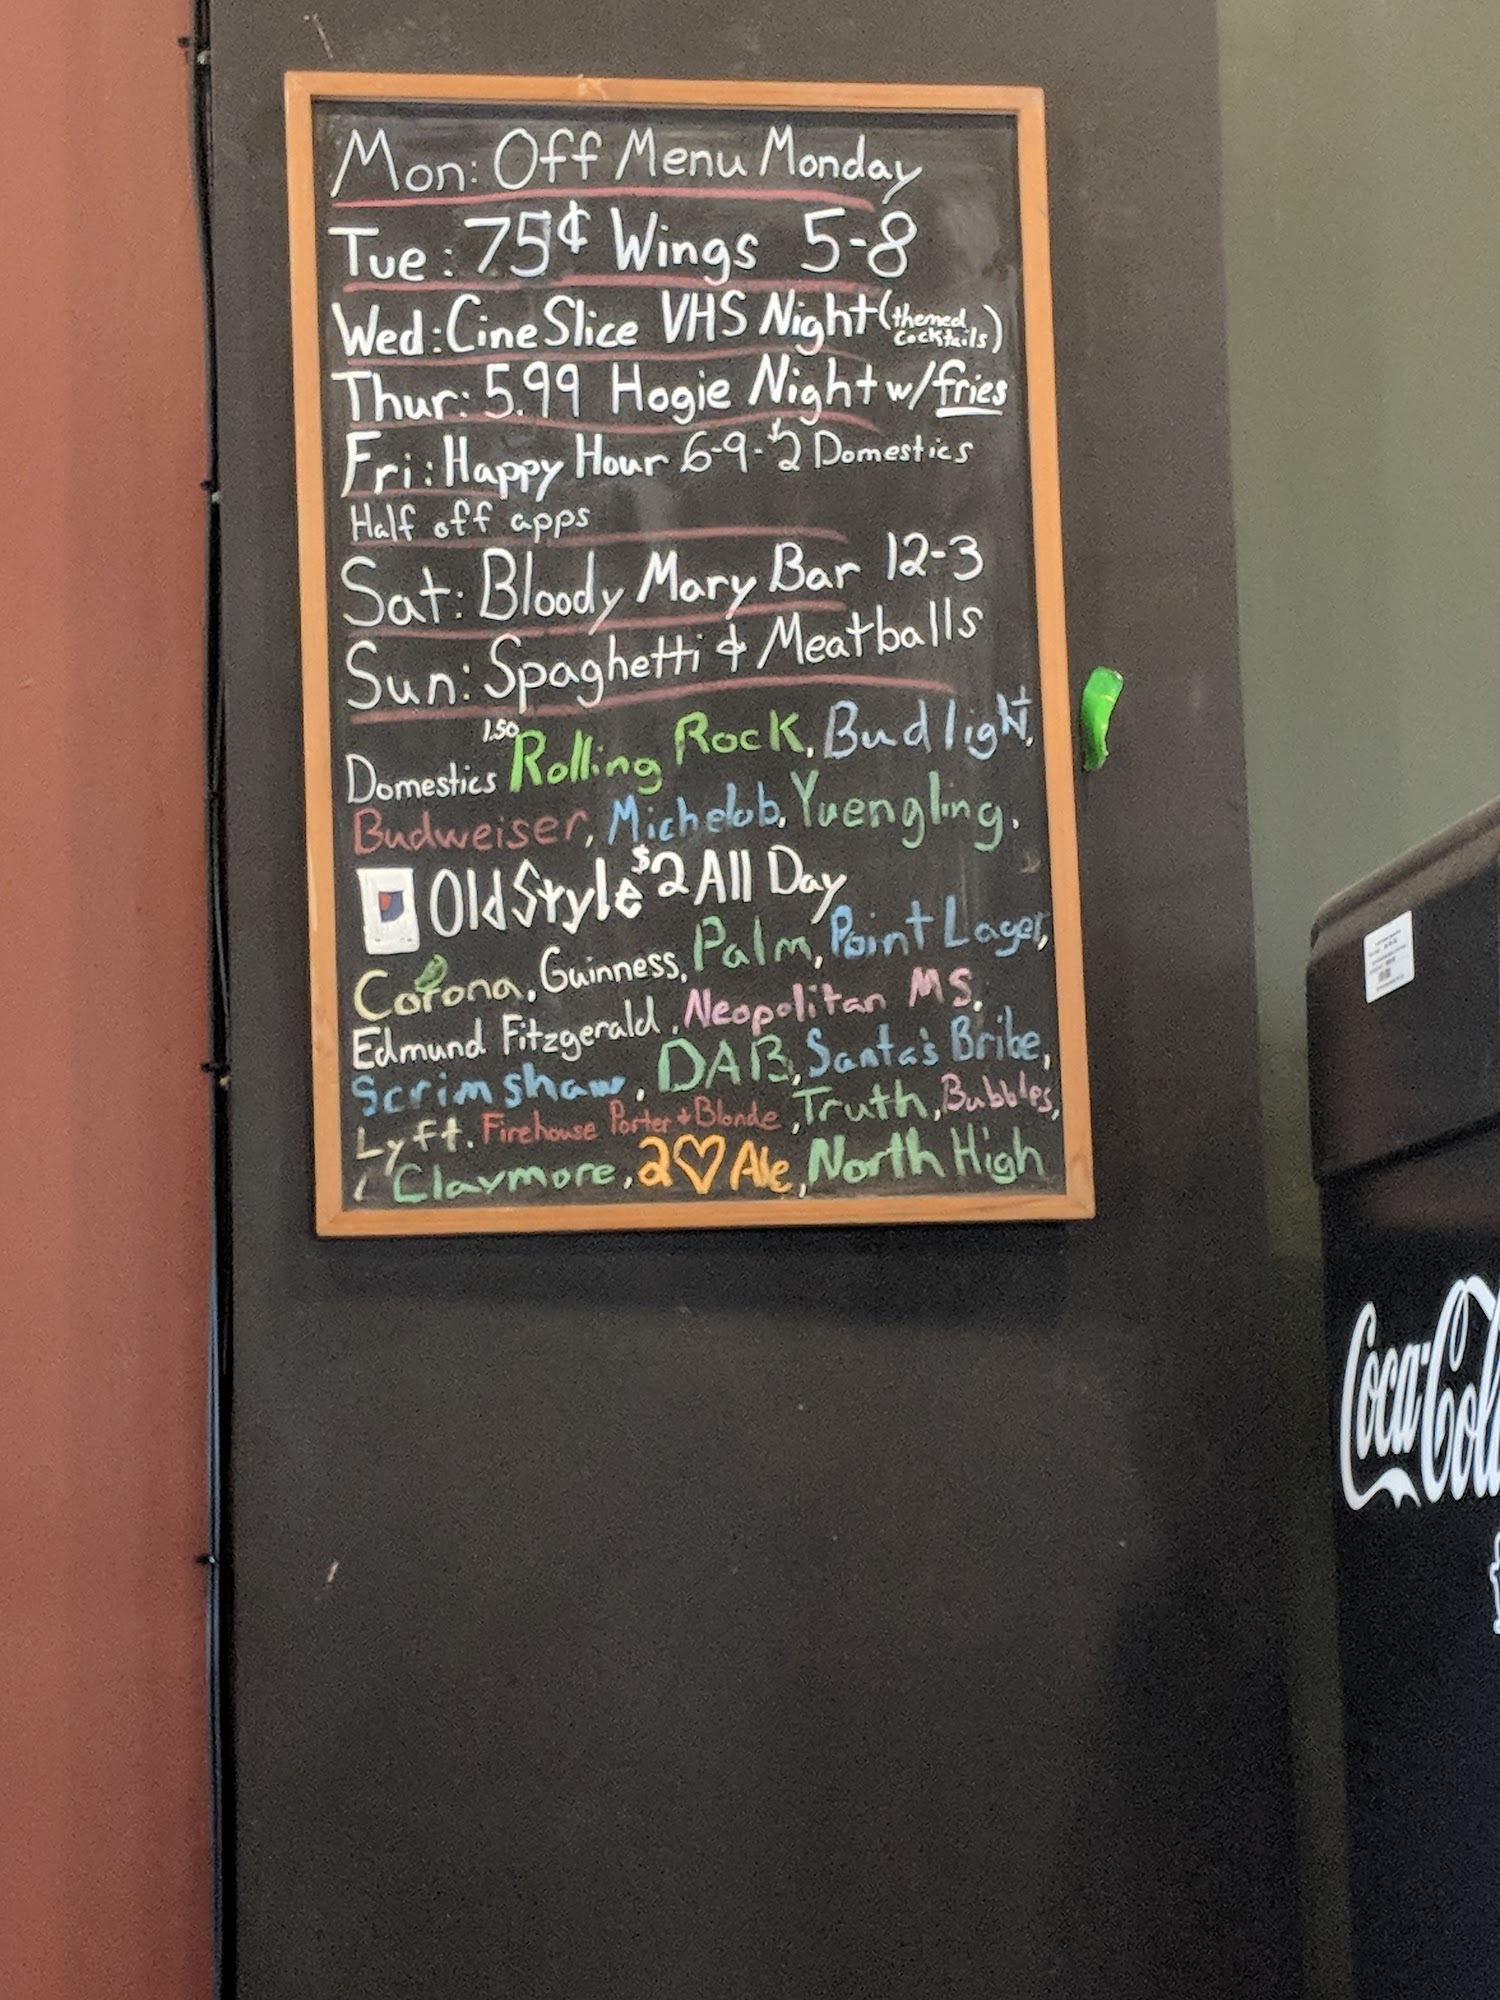 Mon: Off Menu Monday
Tue: 75¢ Wings 5-8
Wed: CineSlice VHS Night (themed cocktails)
Thur: 5.99 Hogie Night w/ fries
Fri: Happy Hour 6-9- $2 Domestics
Half off apps
Sat: Bloody Mary Bar 12-3
Sun: Spaghetti & Meatballs
1.50
Domestics Rolling Rock, Bud light,
Budweiser, Michelob, Yuengling.
Old Style $2 All Day
Corona, Guinness, Palm, Point Lager,
Edmund Fitzgerald, Neopolitan MS,
Scrimshaw, DAB, Santa's Bribe,
Lyft. Firehouse Porter + Blonde, Truth, Bubbles,
Claymore, 2♡ Ale, North High
Coca-Col